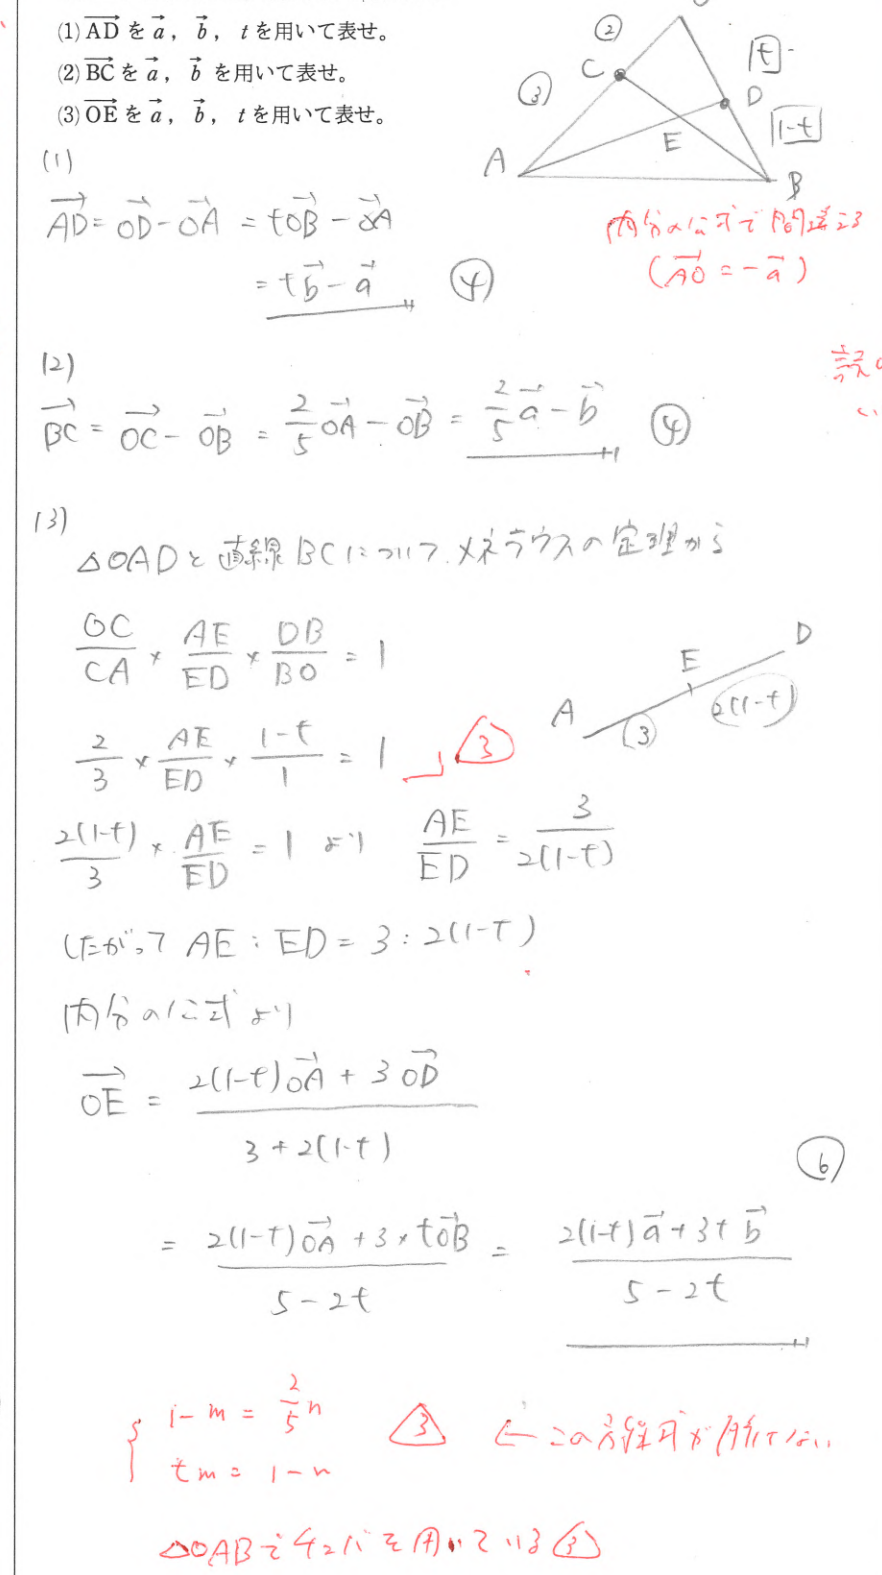 (1) $\overrightarrow{AD}$ を $\vec{a}$, $\vec{b}$, $t$ を用いて表せ。
(2) $\overrightarrow{BC}$ を $\vec{a}$, $\vec{b}$ を用いて表せ。
(3) $\overrightarrow{OE}$ を $\vec{a}$, $\vec{b}$, $t$ を用いて表せ。
② C ③ A E D B t 1-t
内分の公式で間違える
($\overrightarrow{AO} = -\vec{a}$)
(1)
$\overrightarrow{AD} = \overrightarrow{OD} - \overrightarrow{OA} = t\overrightarrow{OB} - \overrightarrow{OA}$
$= t\vec{b} - \vec{a}$ ④
(2)
$\overrightarrow{BC} = \overrightarrow{OC} - \overrightarrow{OB} = \frac{2}{5}\overrightarrow{OA} - \overrightarrow{OB} = \frac{2}{5}\vec{a} - \vec{b}$ ④
(3)
△OADと直線BCについて、メネラウスの定理から
$\frac{OC}{CA} \times \frac{AE}{ED} \times \frac{DB}{BO} = 1$
$\frac{2}{3} \times \frac{AE}{ED} \times \frac{1-t}{1} = 1$ 3
A E D ③ 2(1-t)
$\frac{2(1-t)}{3} \times \frac{AE}{ED} = 1$ より $\frac{AE}{ED} = \frac{3}{2(1-t)}$
したがって AE : ED = 3 : 2(1-t)
内分の公式より
$\overrightarrow{OE} = \frac{2(1-t)\overrightarrow{OA} + 3\overrightarrow{OD}}{3+2(1-t)}$
⑥
$= \frac{2(1-t)\overrightarrow{OA} + 3 \times t\overrightarrow{OB}}{5-2t} = \frac{2(1-t)\vec{a} + 3t\vec{b}}{5-2t}$
$1-m = \frac{2}{5}n$
$tm = 1-n$
3 ← この方程式が解けてない
△OABでチェバを用いている 3